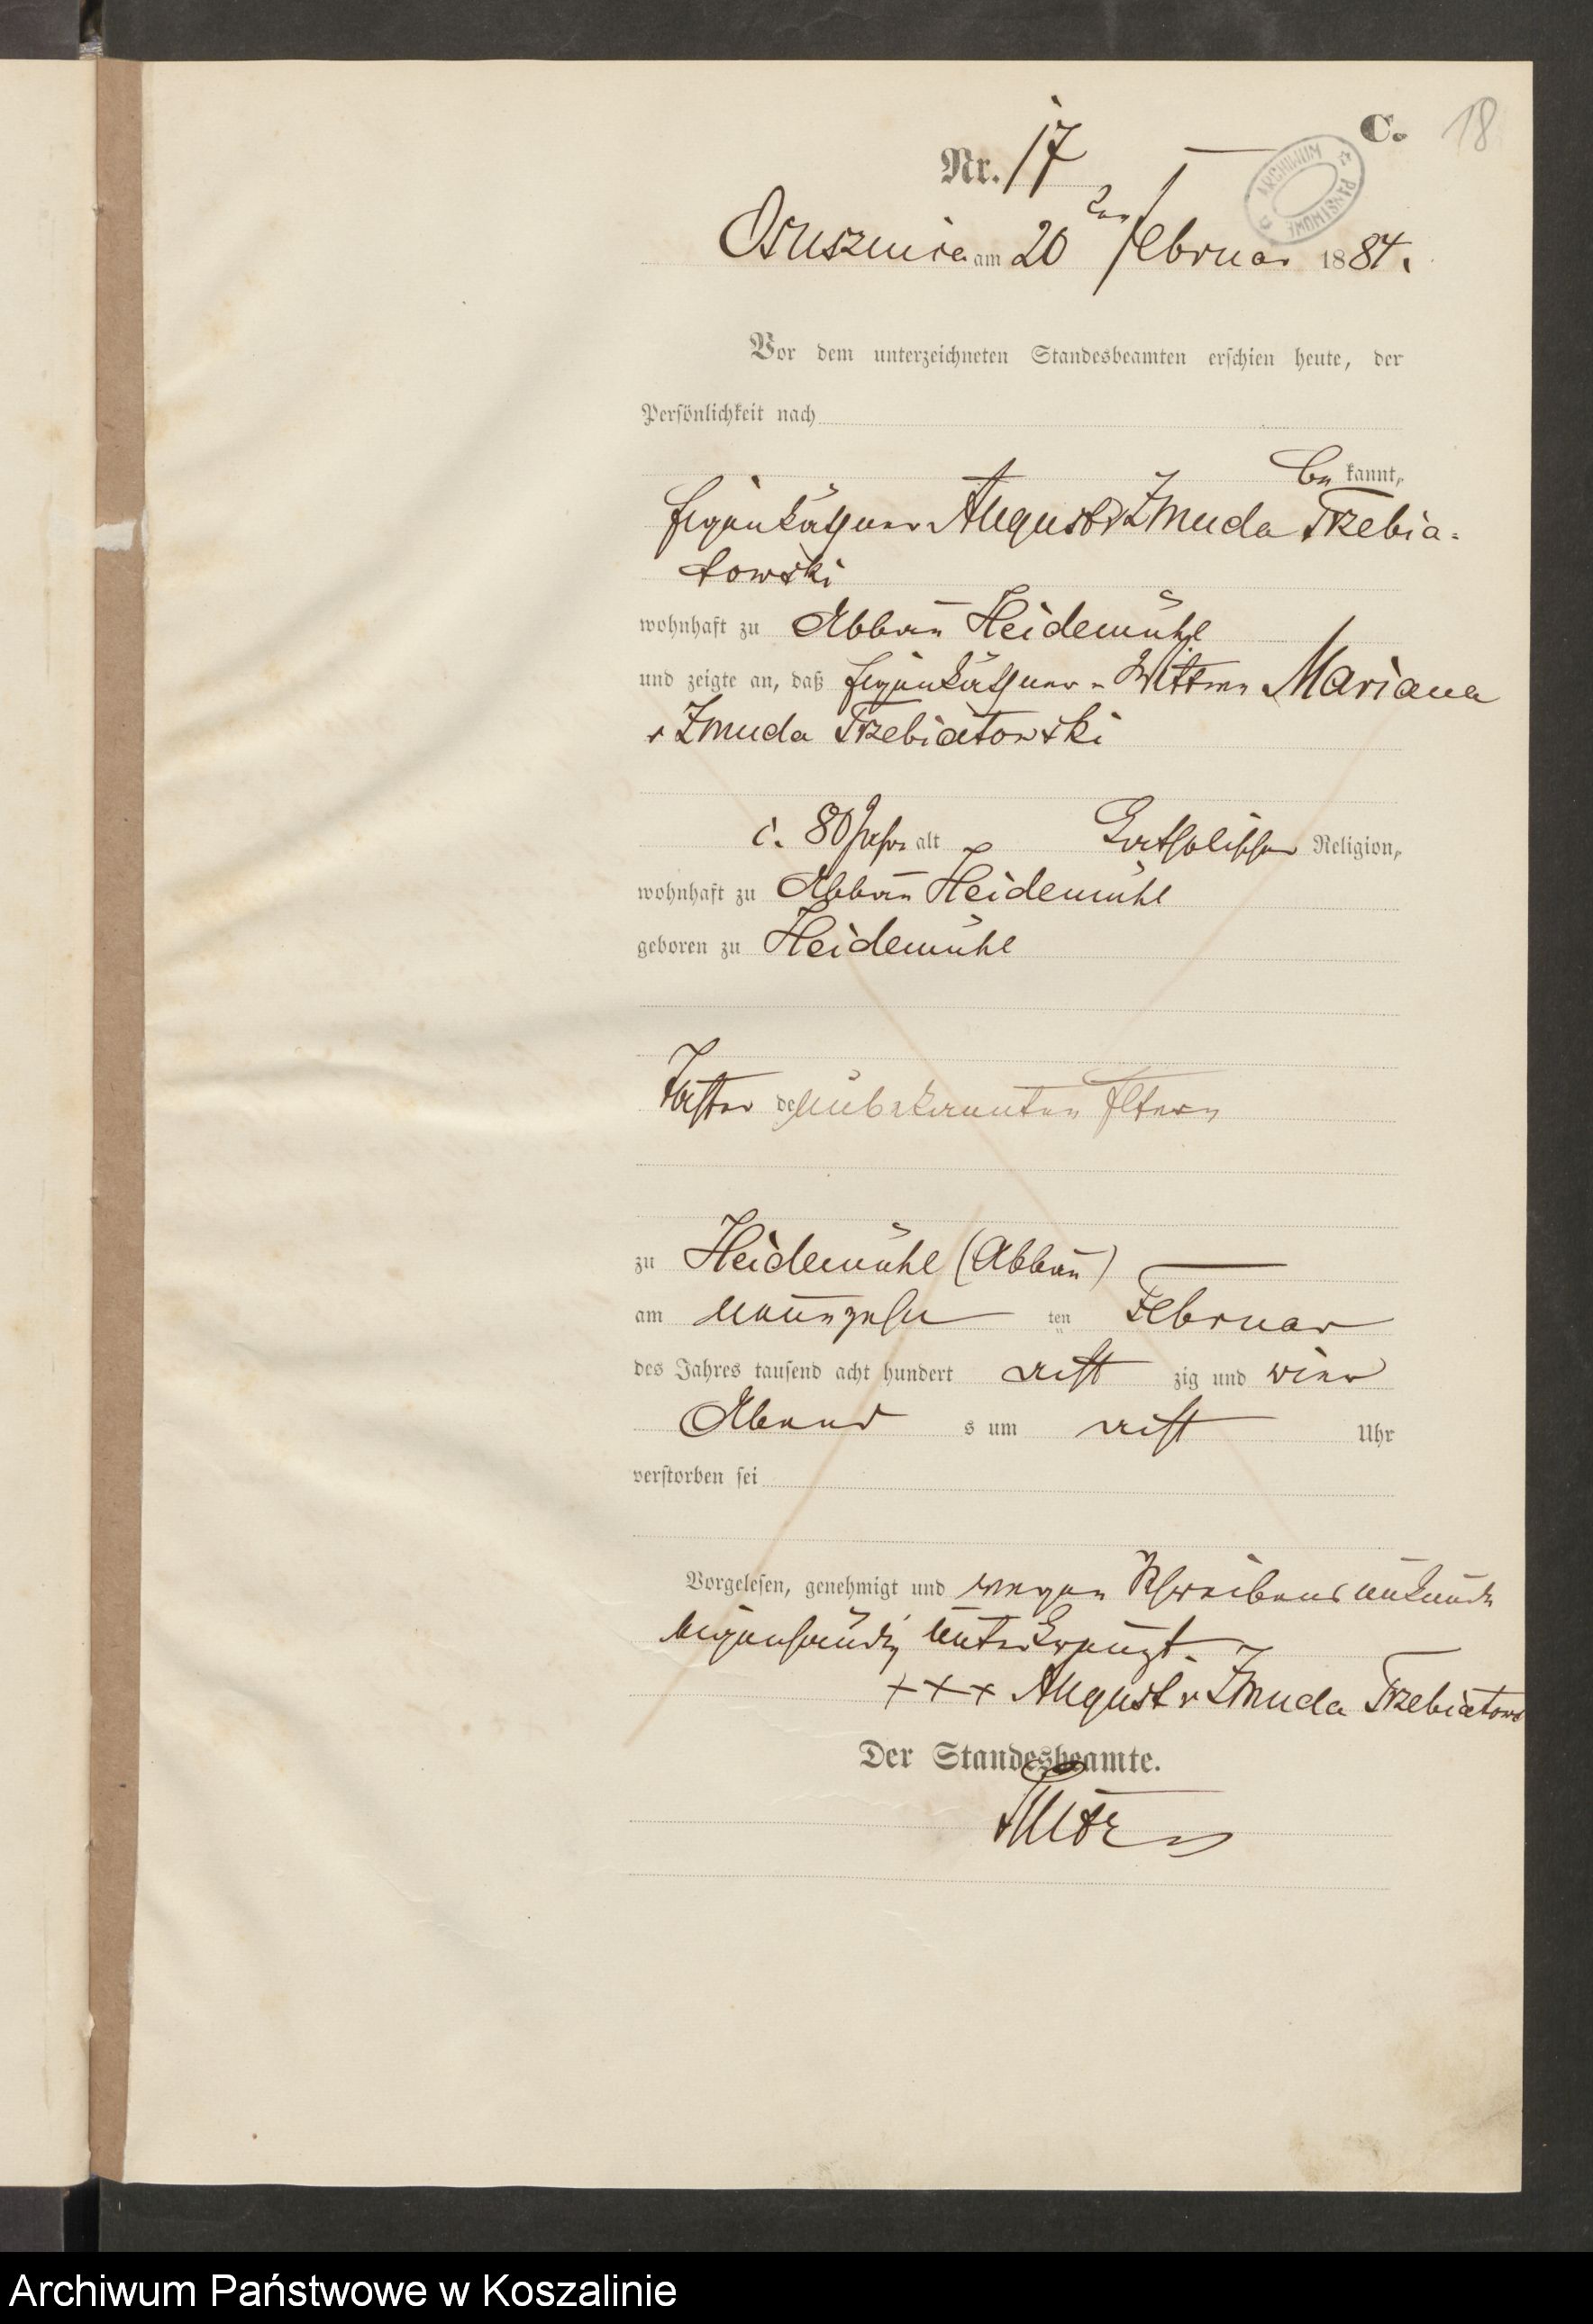 C. 18
ARCHIWUM PAŃSTWOWE
Nr. 17
Osusznica am 20 ten Februar 1884.
Vor dem unterzeichneten Standesbeamten erschien heute, der
Persönlichkeit nach
be kannt,
Eigenkäthner August v Zmuda Trzebia-
towski
wohnhaft zu Abbau Heidemühl
und zeigte an, daß Eigenkäthner-Wittwe Mariana
v Zmuda Trzebiatowski
c. 80 Jahr alt Katholischer Religion,
wohnhaft zu Abbau Heidemühl
geboren zu Heidemühl
Tochter de unbekannten Eltern
zu Heidemühl (Abbau)
am neunzehn ten Februar
des Jahres tausend acht hundert acht zig und vier
Abend s um acht Uhr
verstorben sei
Vorgelesen, genehmigt und wegen Schreibens unkunde
eigenhändig unterkreuzt.
+++ August v Zmuda Trzebiatows
Der Standesbeamte.
Archiwum Państwowe w Koszalinie